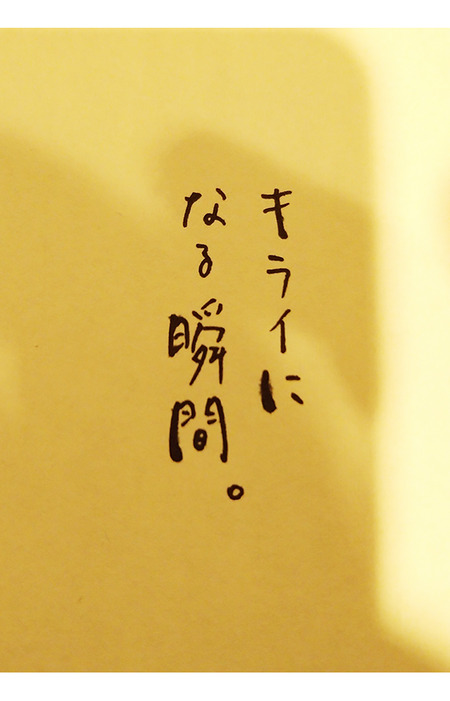 キライに
なる瞬間。